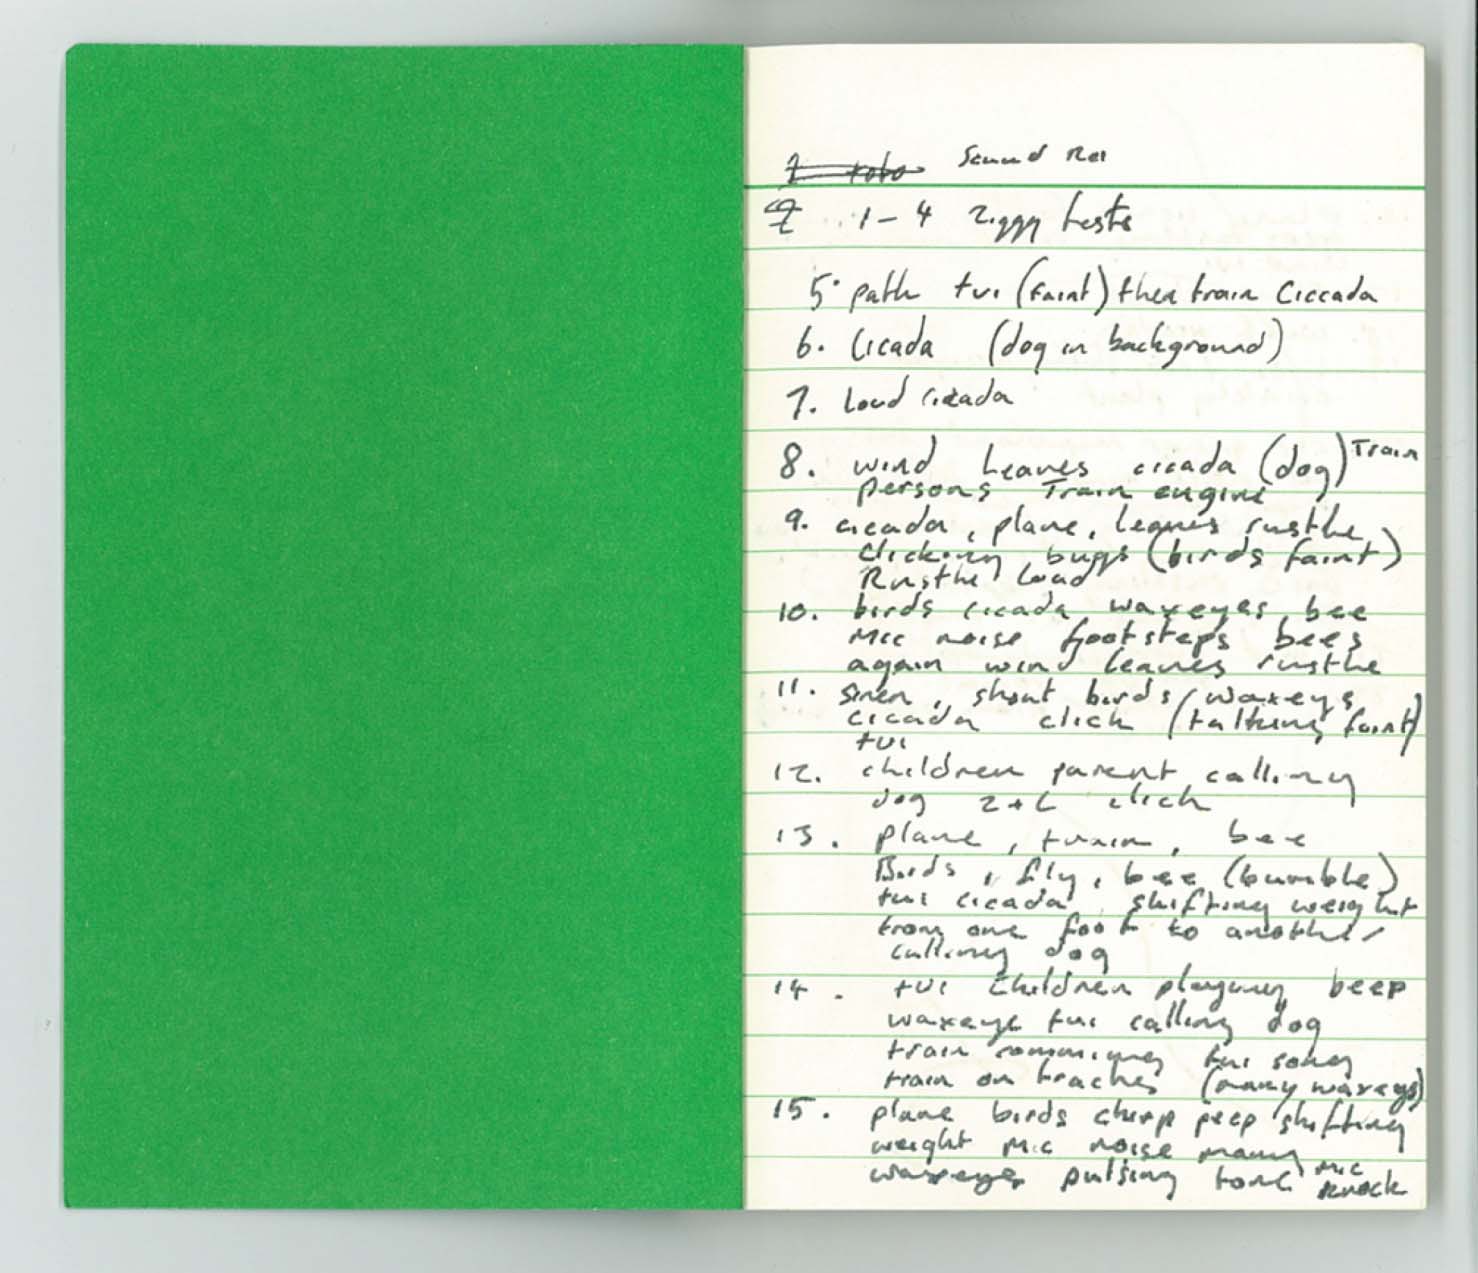 Sound Rec
1-4 Ziggy tests
5. path tui (faint) then train Ciccada
6. Cicada (dog in background)
7. Loud cicada
8. wind Leaves cicada (dog) Train
persons Train engine
9. cicada, plane, leaves rustle
clicking bugs (birds faint)
Rustle loud
10. birds cicada waxeyes, bee
Mic noise footsteps bees
again wind leaves rustle
11. siren, shout birds/waxeys
cicada click (talking faint)
tui
12. children parent calling
dog Z+L click
13. plane, train, bee
Birds, fly, bee (bumble)
tui cicada shifting weight
from one foot to another
calling dog
14. tui children playing beep
waxeye tui calling dog
train comming tui song
train on tracks (many waxeys)
15. plane birds chirp peep shifting
weight Mic noise many
waxeye, pulsing tone mic
knock